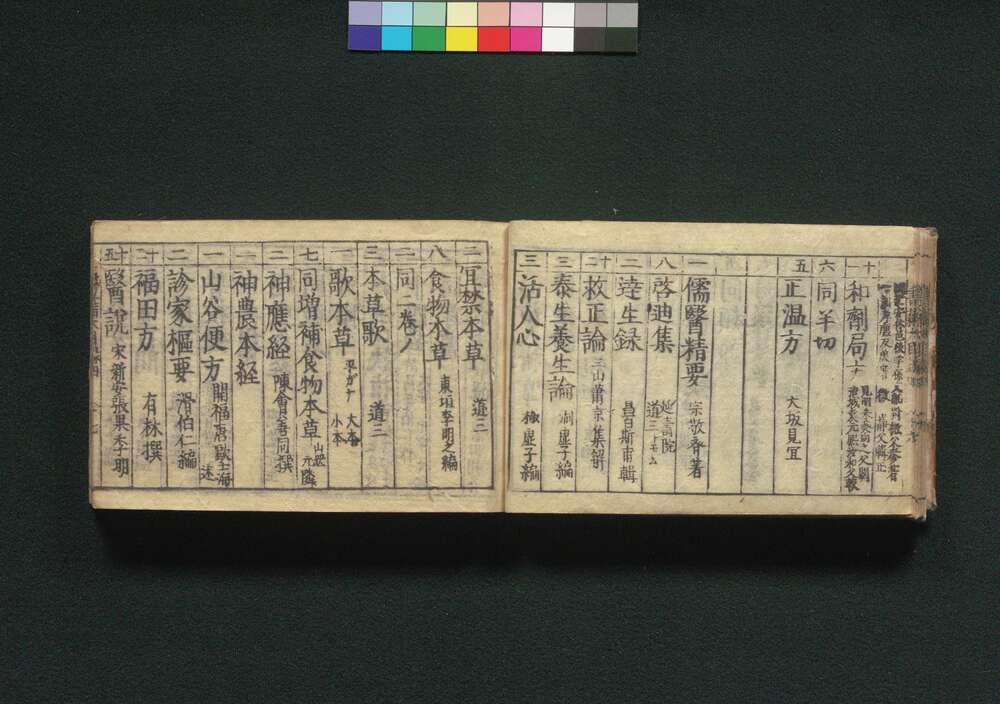 十一 和劑局方
六 同羊切
五 正温方 大坂見宜
一 儒醫精要 宗敬齊著
八 啓迪集 延壽院 道三
二 達生録 昌斯甫輯
十二 救正論 三山蕭京集解
三 泰生養生論 洞虚子編
三 活人心 極虚子編
二 宜禁本草 道三
八 食物本草 東垣李明之編
二 同二巻ノ
三 本草歌 道三
一 歌本草 平ガナ 大本 小本
七 同増補食物本草 山岡元隣
二 神應經 陳會善同撰
一 神農本経
一 山谷便方 開福唐歐士海述
二 診家樞要 滑伯仁編
二十 福田方 有林撰
十五 醫説 宋新安張杲季明